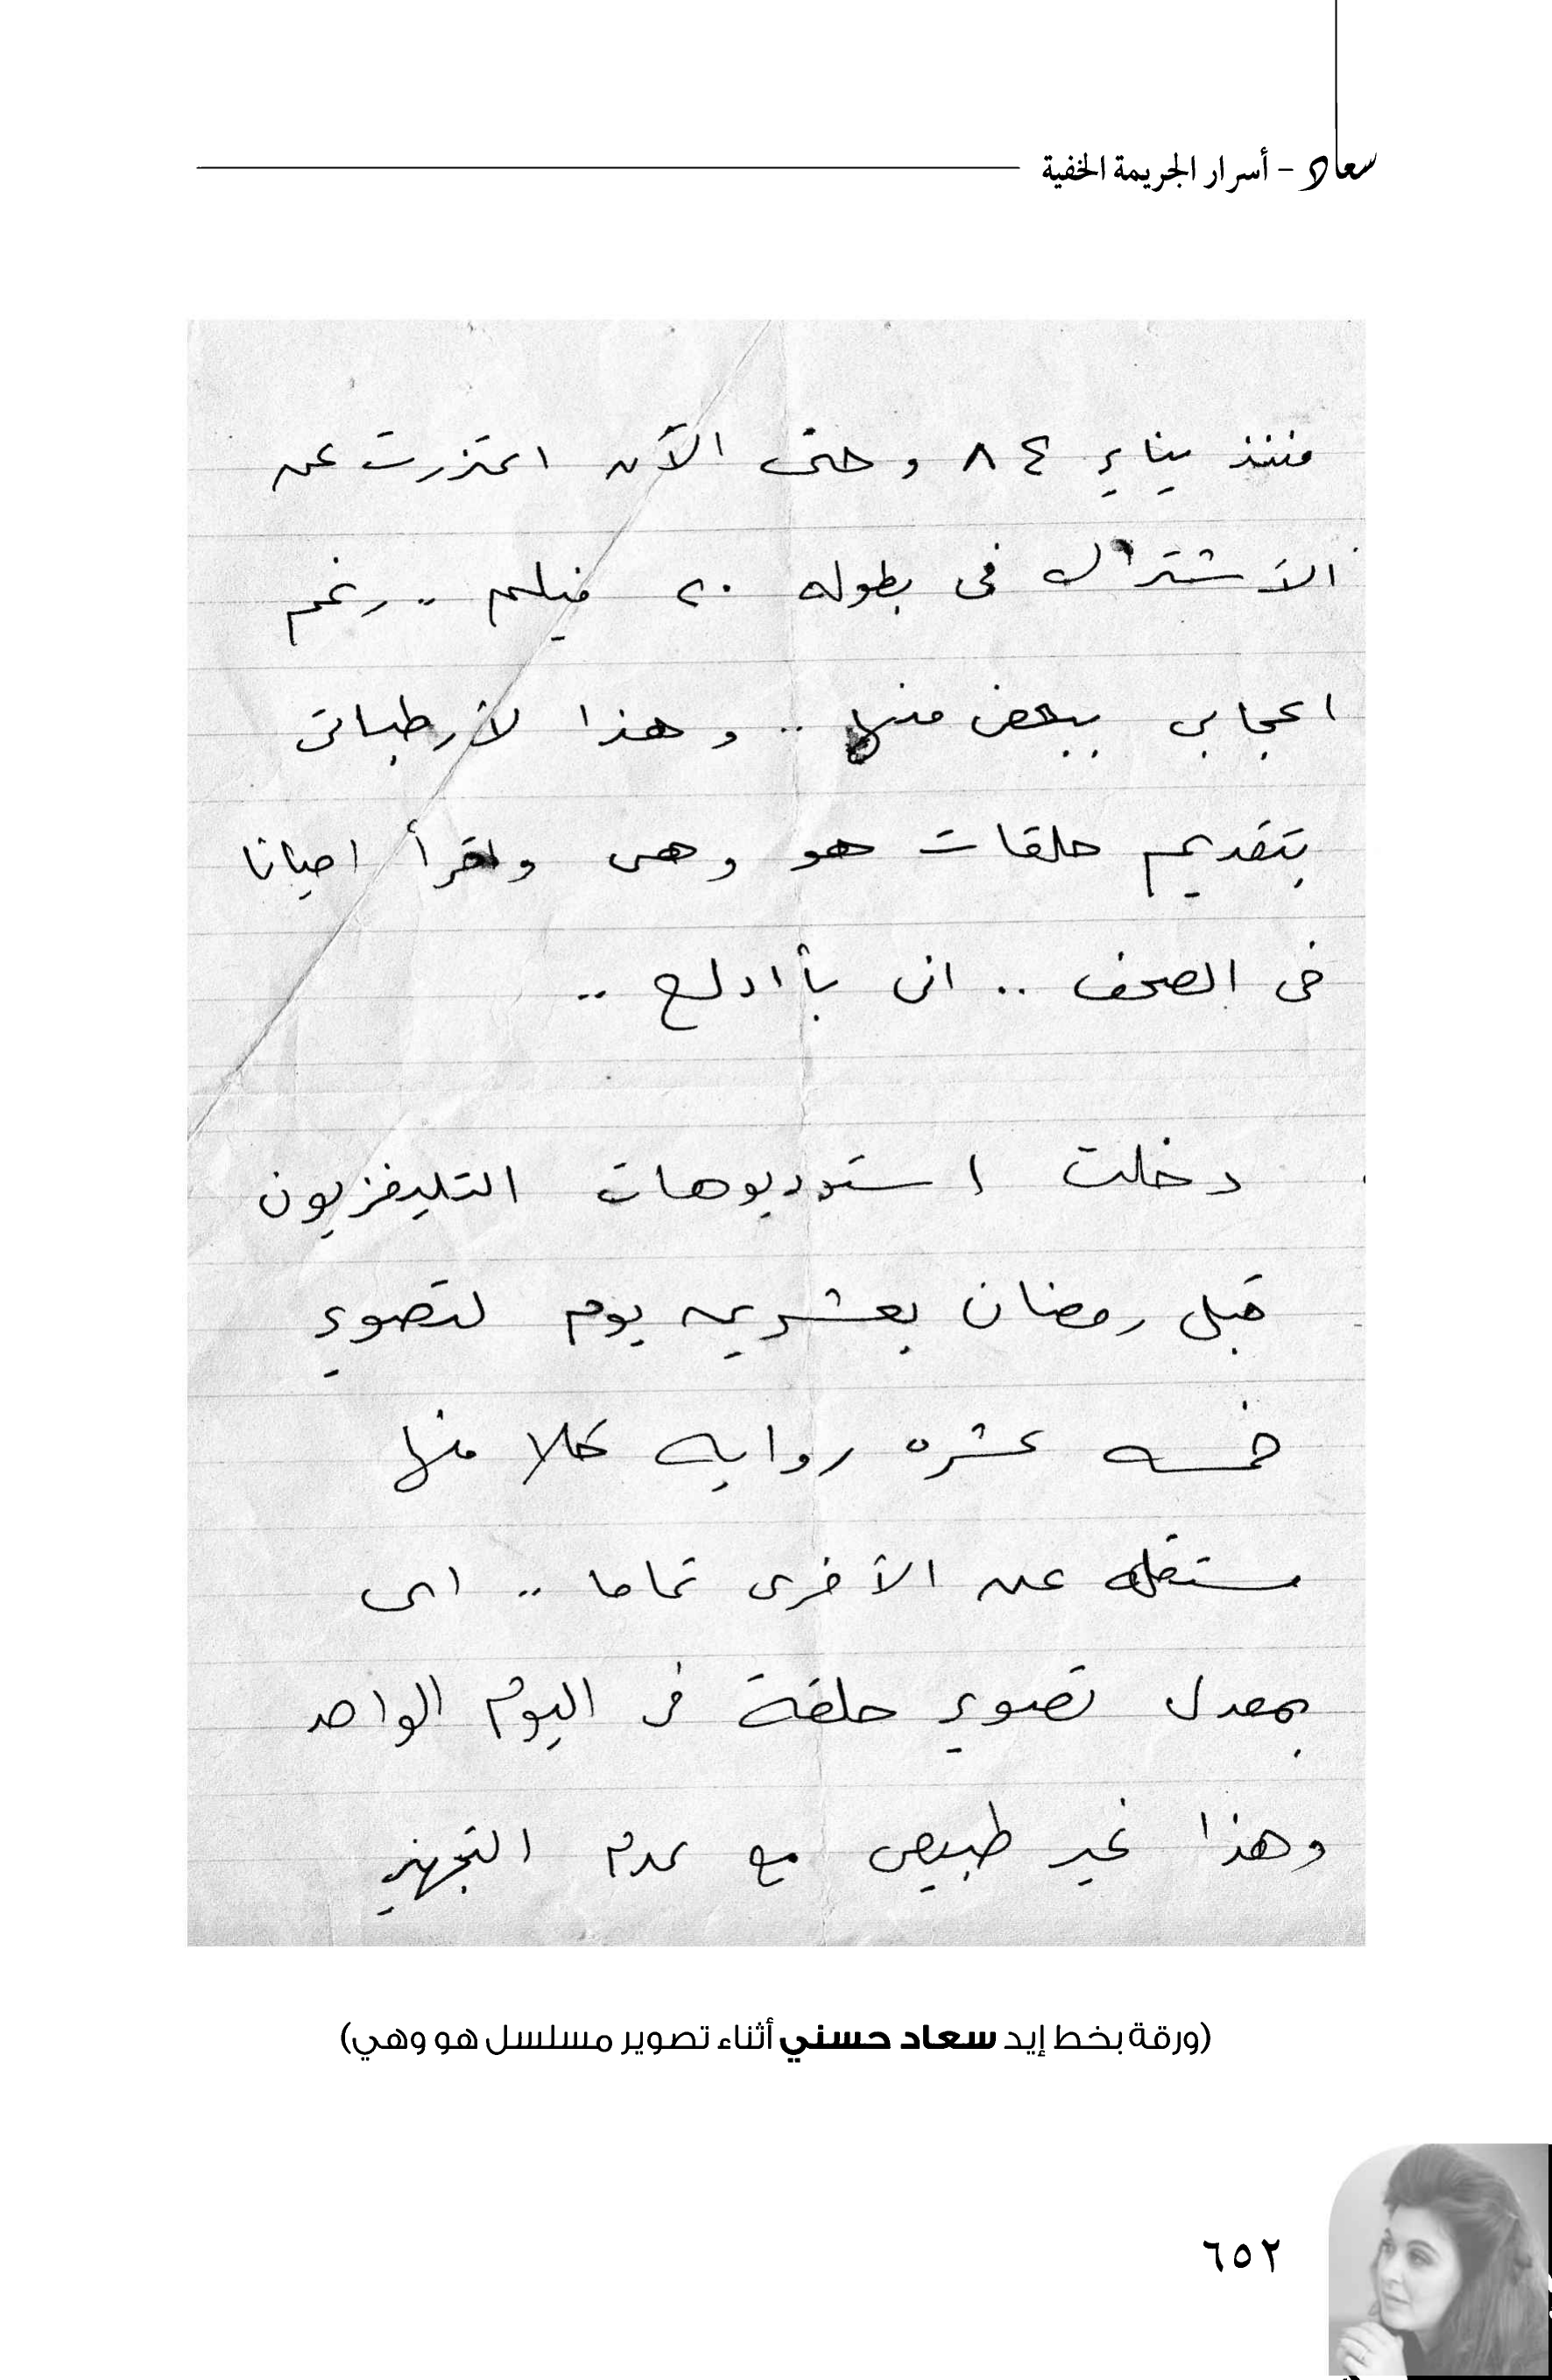 سعاد - أسرار الجريمة الخفية
فمنذ يناير ٨٤ وحتى الآن اعتزرت عن
الأشتراك فى بطوله ٢٠ فيلم .. رغم
اعجابى ببعض منها .. وهذا لأرطباتى
بتقديم حلقات هو وهى واقرأ احيانا
فى الصحف .. انى بأادلع ..
دخلت استوديوهات التليفزيون
قبل رمضان بعشرين يوم لتصوير
خمسه عشره روايه كلا منها
مستقله عن الأخرى تماما .. اى
بمعدل تصوير حلقة فى اليوم الواحد
وهذا غير طبيعى مع عدم التجهيز
(ورقة بخط إيد سعاد حسني أثناء تصوير مسلسل هو وهي)
٦٥٢